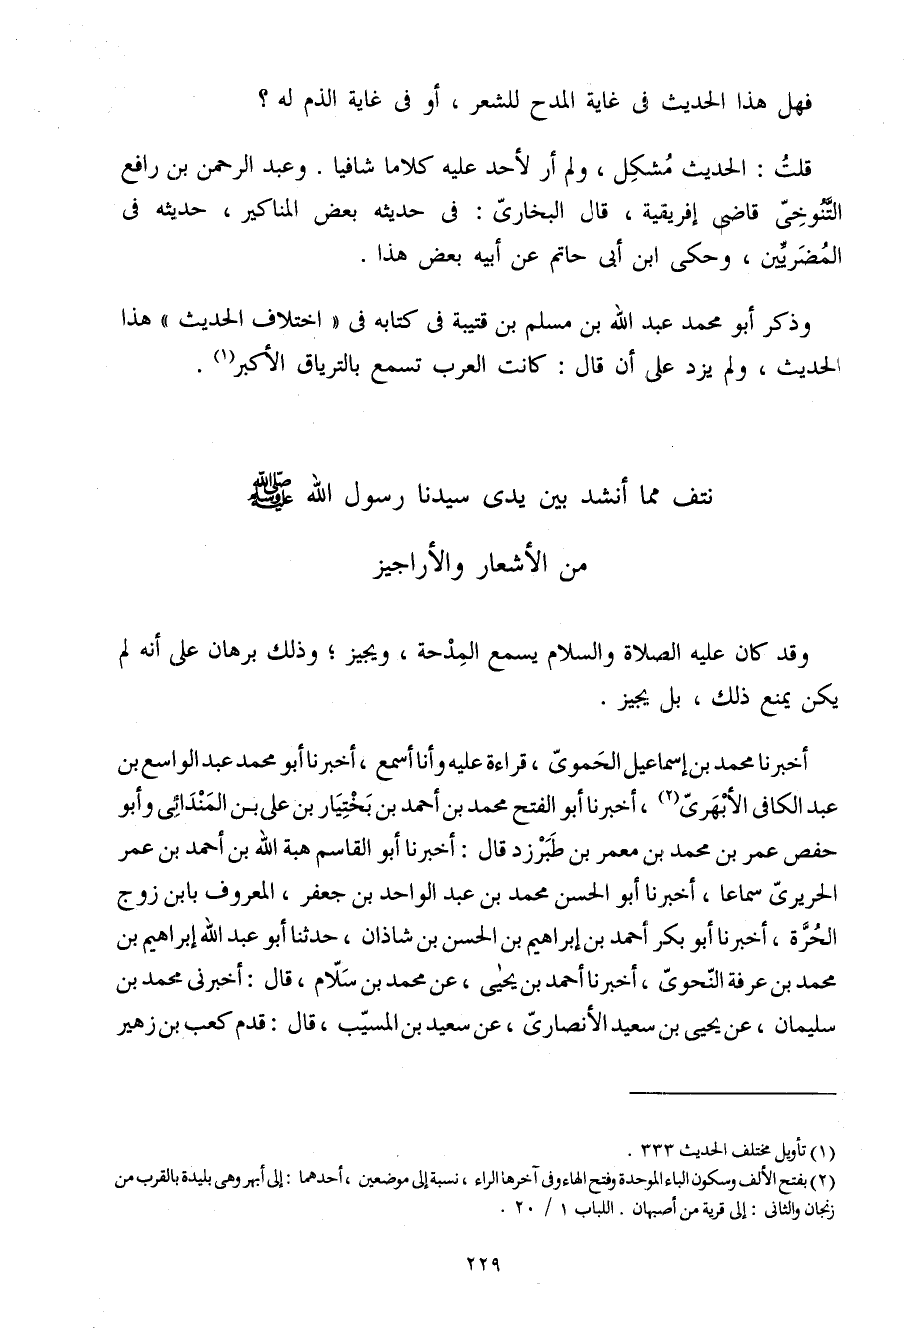 فهل هذا الحديث فى غاية المدح للشعر ، أو فى غاية الذم له ؟
قلتُ : الحديث مُشكِل ، ولم أر لأحد عليه كلاما شافيا . وعبد الرحمن بن رافع
التَّنُوخِىّ قاضى إفريقية ، قال البخارىّ : فى حديثه بعض المناكير ، حديثه فى
المُضَرِيِّين ، وحكى ابن أبى حاتم عن أبيه بعض هذا .
وذكر أبو محمد عبد الله بن مسلم بن قتيبة فى كتابه فى « اختلاف الحديث » هذا
الحديث ، ولم يزد على أن قال : كانت العرب تسمع بالترياق الأكبر(١) .
نتف مما أنشد بين يدى سيدنا رسول الله ﷺ
من الأشعار والأراجيز
وقد كان عليه الصلاة والسلام يسمع المِدْحة ، ويجيز ؛ وذلك برهان على أنه لم
يكن يمنع ذلك ، بل يجيز .
أخبرنا محمد بن إسماعيل الحَموىّ ، قراءة عليه وأنا أسمع ، أخبرنا أبو محمد عبد الواسع بن
عبد الكافى الأَبْهَرىّ(٢) ، أخبرنا أبو الفتح محمد بن أحمد بن بَخْتِيَار بن على بن المَنْدَائِى وأبو
حفص عمر بن محمد بن معمر بن طَبَرْزد قال : أخبرنا أبو القاسم هبة الله بن أحمد بن عمر
الحريرىّ سماعا ، أخبرنا أبو الحسن محمد بن عبد الواحد بن جعفر ، المعروف بابن زوج
الحُرَّة ، أخبرنا أبو بكر أحمد بن إبراهيم بن الحسن بن شاذان ، حدثنا أبو عبد الله إبراهيم بن
محمد بن عرفة النّحوىّ ، أخبرنا أحمد بن يحيٰى ، عن محمد بن سَلّام ، قال : أخبرنى محمد بن
سليمان ، عن يحيى بن سعيد الأنصارىّ ، عن سعيد بن المسيّب ، قال : قدم كعب بن زهير
(١) تأويل مختلف الحديث ٣٣٣ .
(٢) بفتح الألف وسكون الباء الموحدة وفتح الهاء وفى آخرها الراء ، نسبة إلى موضعين ، أحدهما : إلى أبهر وهى بليدة بالقرب من
زنجان والثانى : إلى قرية من أصبهان . اللباب ١ / ٢٠ .
٢٢٩